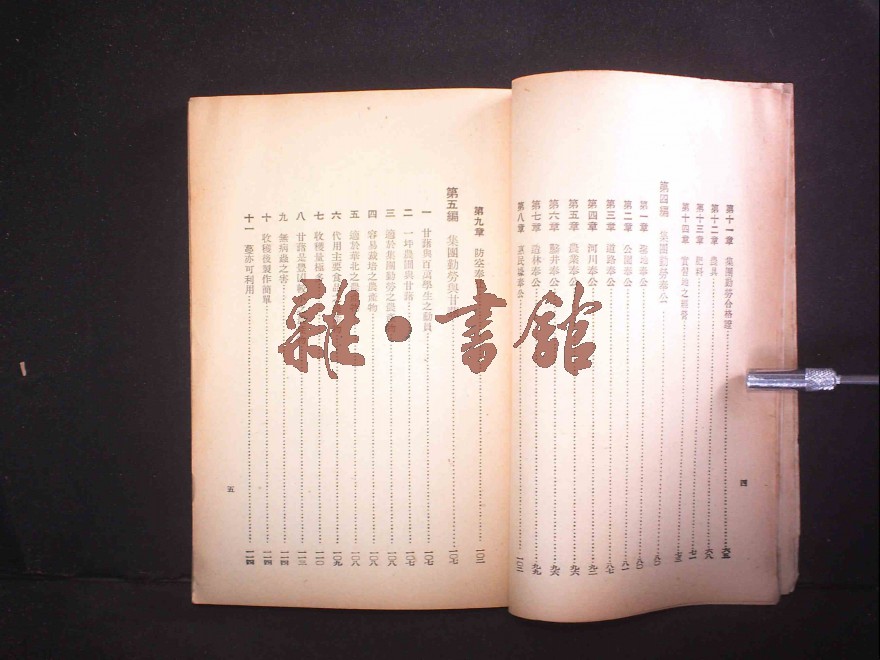 第十一章 集團勤勞合格證 六五
第十二章 農具 六八
第十三章 肥料 七一
第十四章 實習地之經營 七三
第四編 集團勤勞奉公 八〇
第一章 墾地奉公 八〇
第二章 公園奉公 八一
第三章 道路奉公 八七
第四章 河川奉公 九二
第五章 農業奉公 九六
第六章 鑿井奉公 九六
第七章 造林奉公 九九
第八章 農民壕奉公 一〇二
四
第九章 防空奉 一〇三
第五編 集團勤勞與甘 一〇七
一 甘藷與百萬學生之動員 一〇七
二 一坪農園與甘藷 一〇七
三 適於集團勤勞之農 一〇八
四 容易栽培之農產物 一〇八
五 適於華北之農 一〇八
六 代用主要食品 一〇九
七 收穫量極多 一一〇
八 甘藷是豐凶 一一三
九 無病蟲之害 一一四
十 收穫後製作簡單 一一四
十一 蔓亦可利用 一一四
五
雜·書館